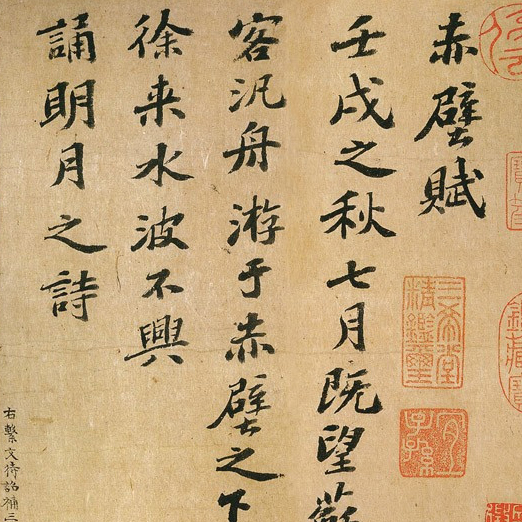 赤壁賦
壬戌之秋七月既望蘇
客汎舟游于赤壁之下
徐来水波不興
誦明月之詩
右繫文待詔補三
三希堂精鑑璽
宜子孫